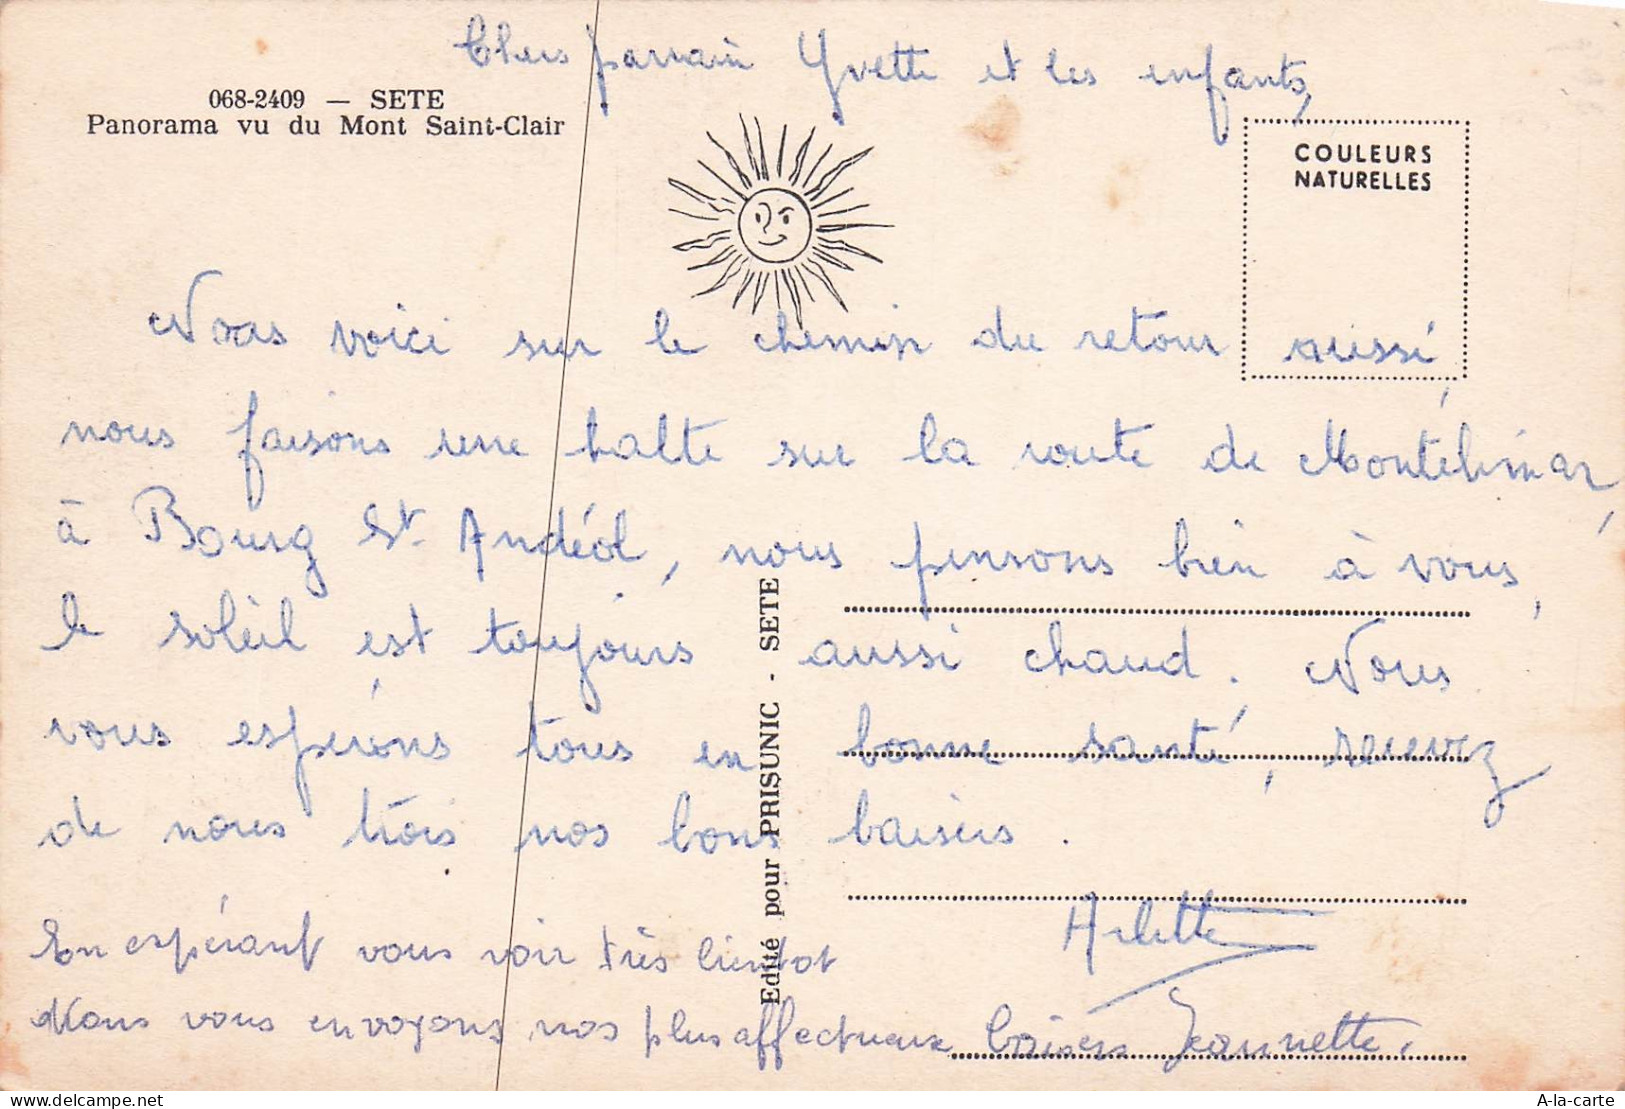 Chers parrain Yvette et les enfants,
068-2409 — SETE
Panorama vu du Mont Saint-Clair
COULEURS
NATURELLES
Nous voici sur le chemin du retour aussi,
nous faisons une halte sur la route de Montélimar,
à Bourg St. Andéol, nous pensons bien à vous,
le soleil est toujours aussi chaud. Nous
vous espérons tous en bonne santé, recevez
de nous trois nos bons baisers.
Arlette
En espérant vous voir très bientot
Nous vous envoyons nos plus affectueux baisers Jeannette.
Edité pour PRISUNIC - SETE
delcampe.net
A-la-carte